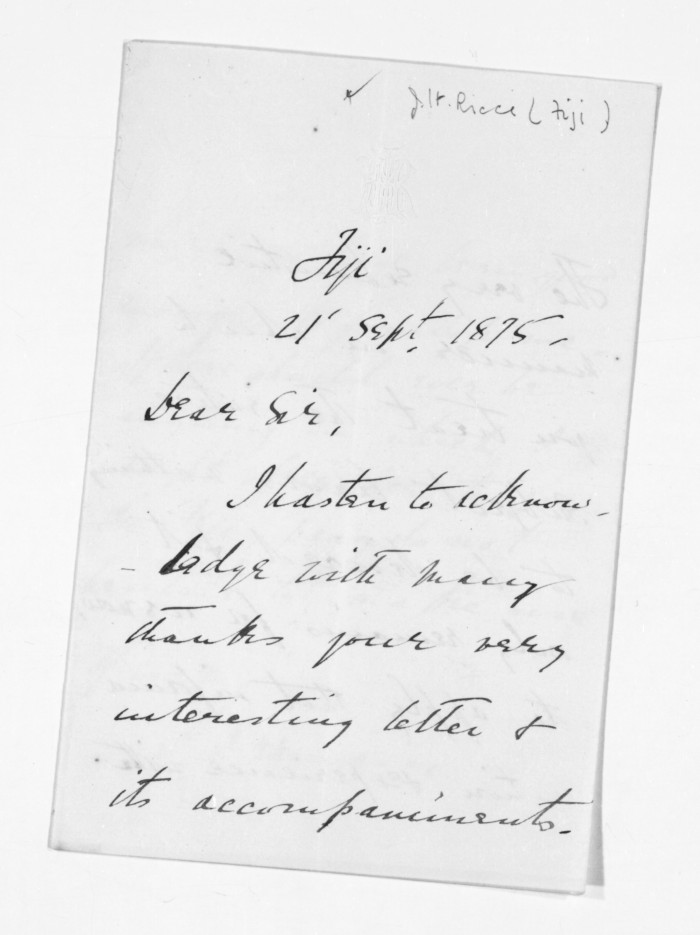 J. H. Ricci (Fiji)
Fiji
21' Sept. 1875.
Dear Sir,
I hasten to acknow-
-ledge with many
thanks your very
interesting letter &
its accompaniments.